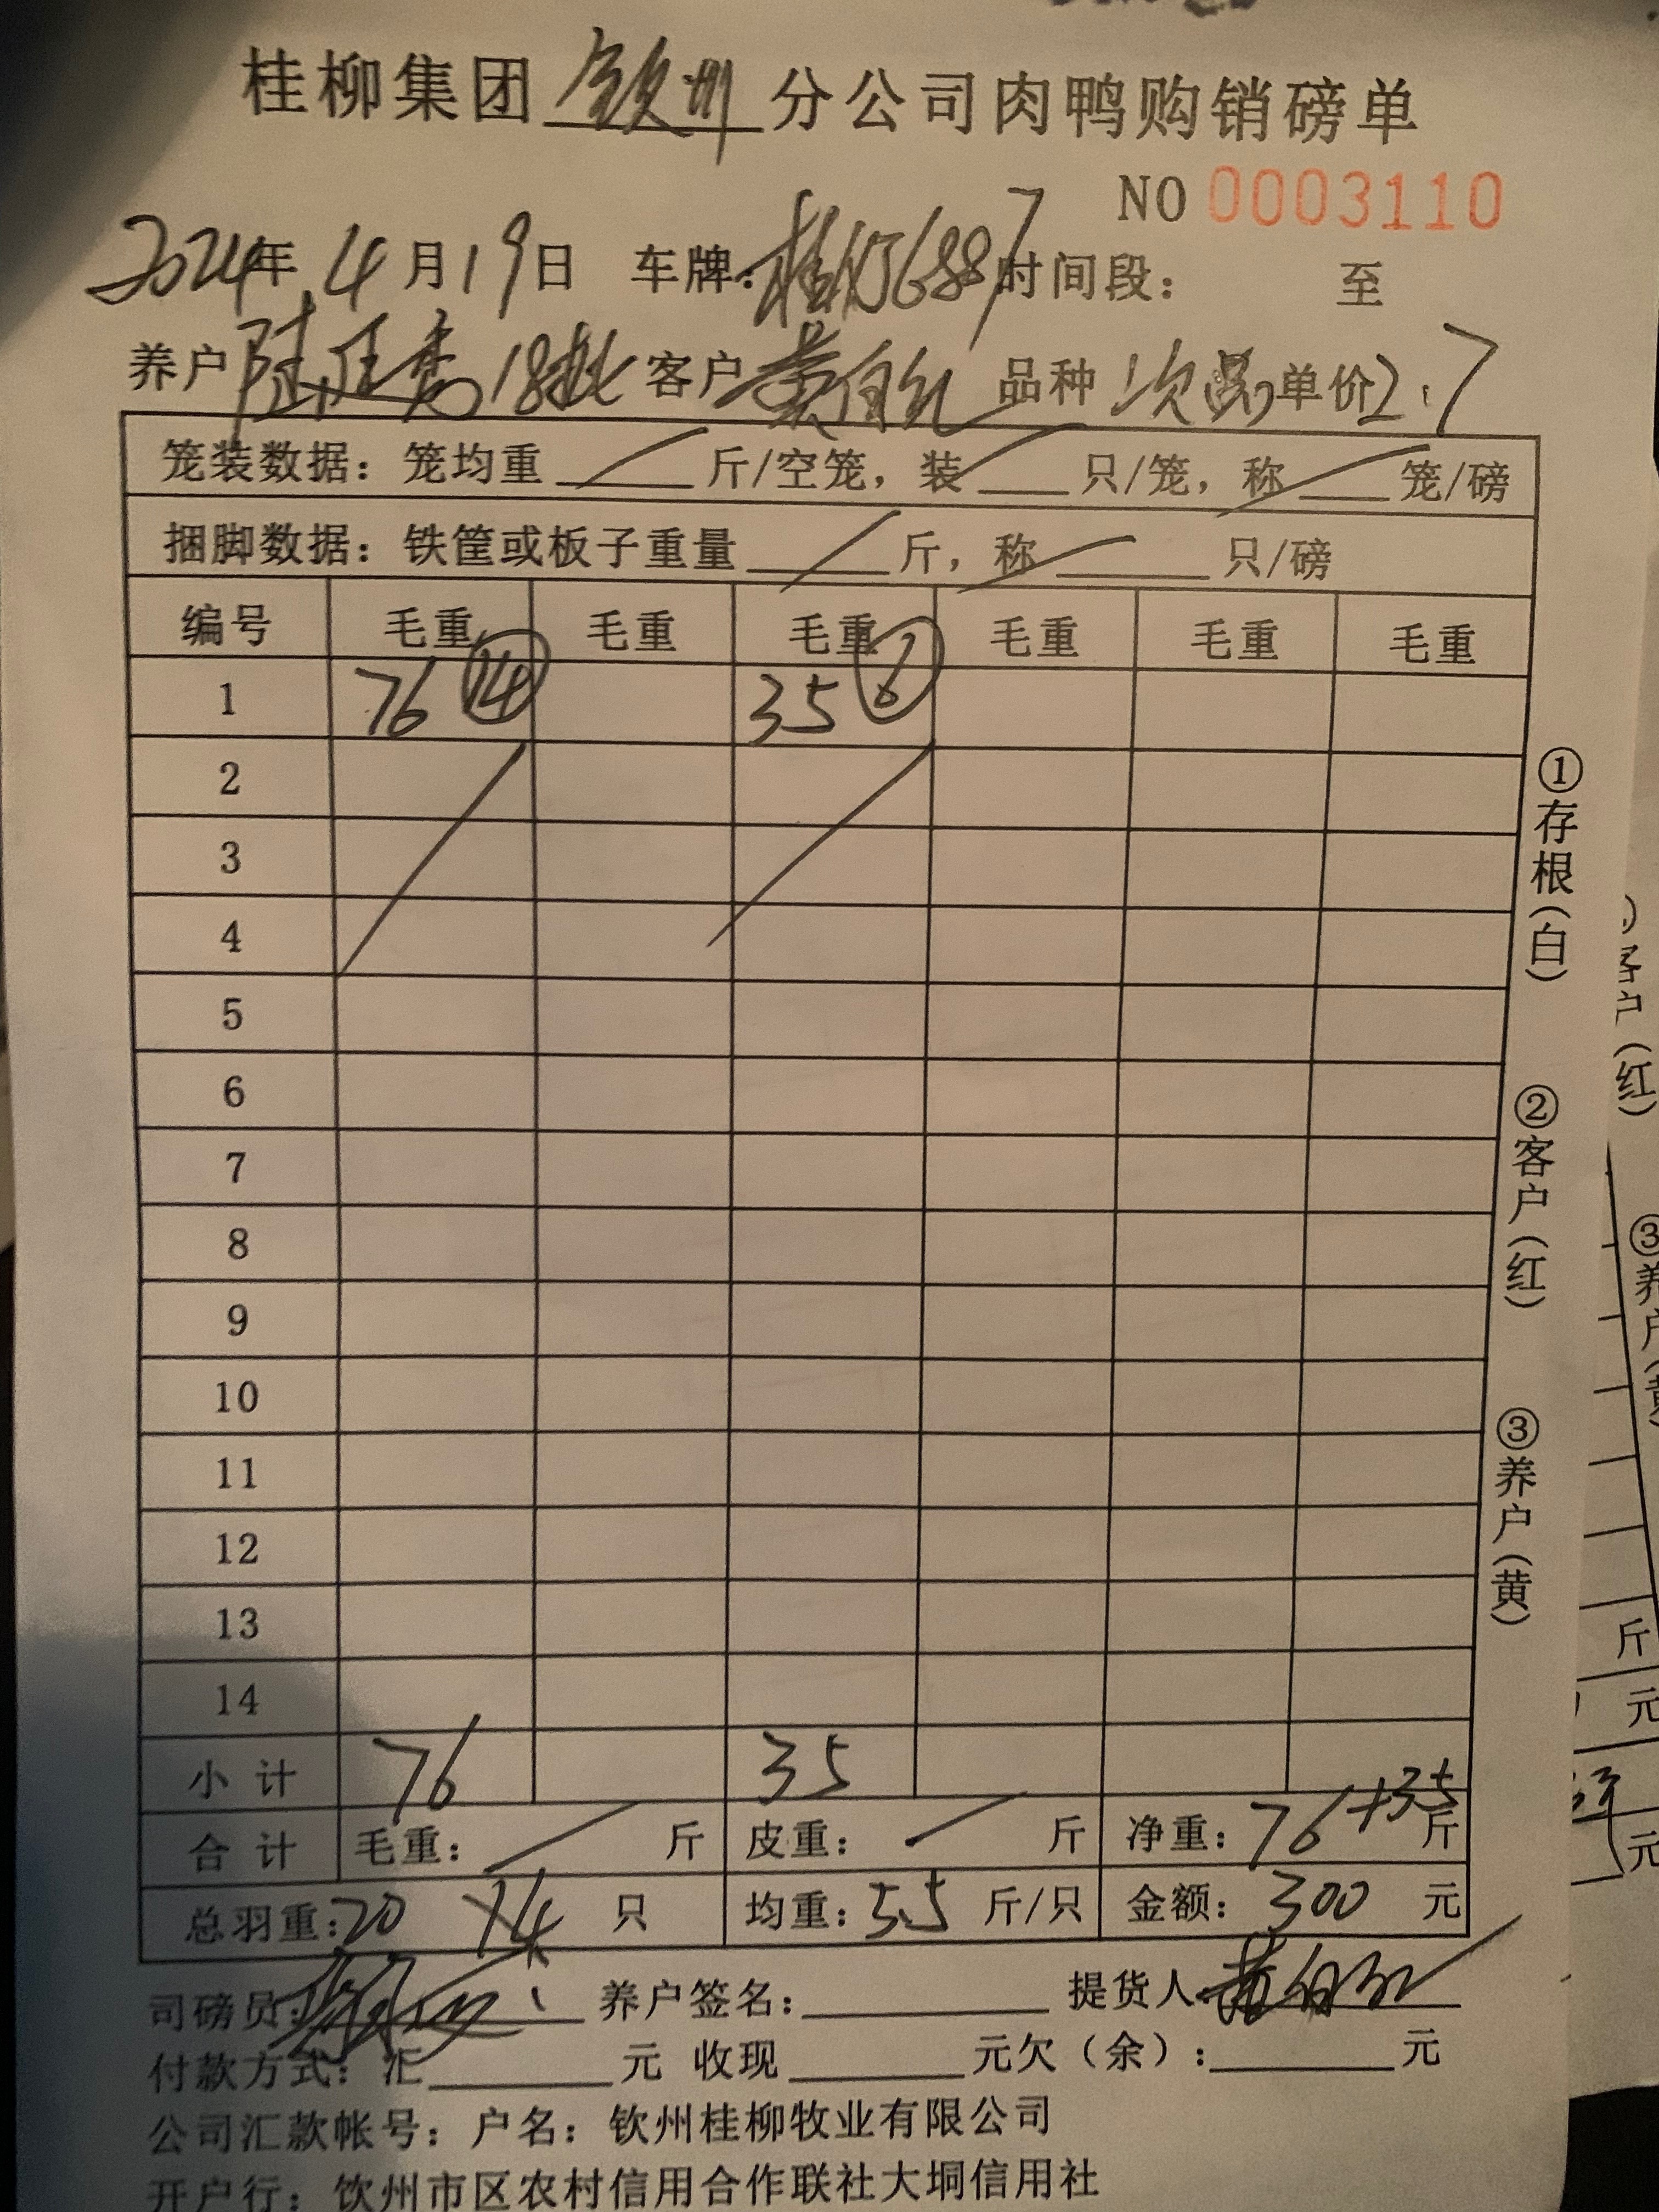 桂柳集团 钦州 分公司肉鸭购销磅单
NO 0003110
2024年 4月19日 车牌: 时间段: 至
养户 18批 客户 品种 次品 单价2.7
笼装数据: 笼均重 斤/空笼, 装 只/笼, 称 笼/磅
捆脚数据: 铁筐或板子重量 斤, 称 只/磅
编号 毛重 毛重 毛重 毛重 毛重 毛重
1 76 14 35 6
2
3
4
5
6
7
8
9
10
11
12
13
14
小计 76 35
合计 毛重: 斤 皮重: 斤 净重: 76+35 斤
总羽重: 20 只 均重: 5.5 斤/只 金额: 300 元
司磅员: 养户签名: 提货人:
付款方式: 汇 元 收现 元欠(余): 元
公司汇款帐号: 户名: 钦州桂柳牧业有限公司
开户行: 钦州市区农村信用合作联社大垌信用社
①存根(白)
②客户(红)
③养户(黄)
客户(红)
③养户(黄
斤
元
元